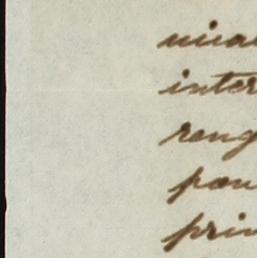 inter
reng
pou
prin